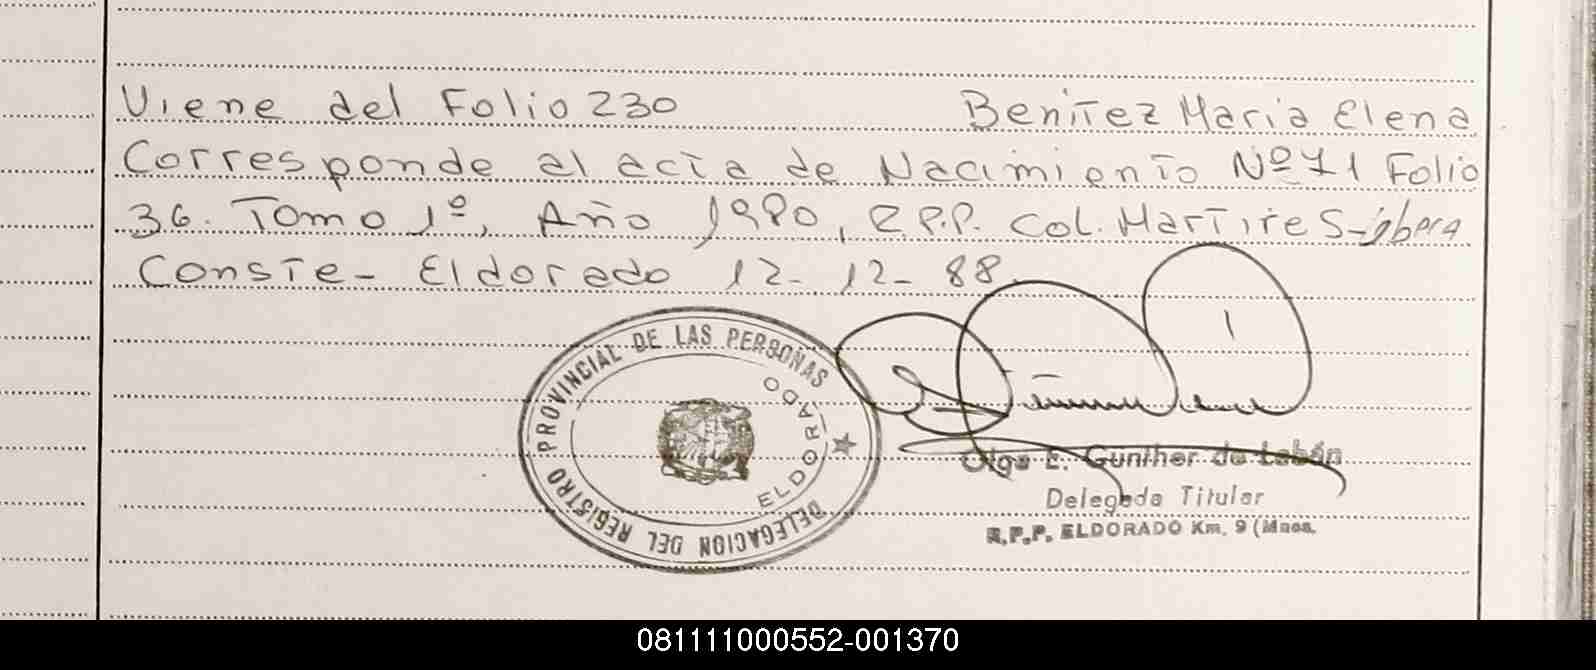 Viene del Folio 230 Benitez Maria Elena
Corresponde al acta de Nacimiento Nº 71 Folio
36. Tomo 1º, Año 1980, R.P.P. Col. Martires-
Conste - Eldorado 12-12-88.
DELEGACION DEL REGISTRO PROVINCIAL DE LAS PERSONAS
ELDORADO
Olga E. Gunther de Lebán
Delegada Titular
R.P.P. ELDORADO Km. 9 (Mnes.
081111000552-001370